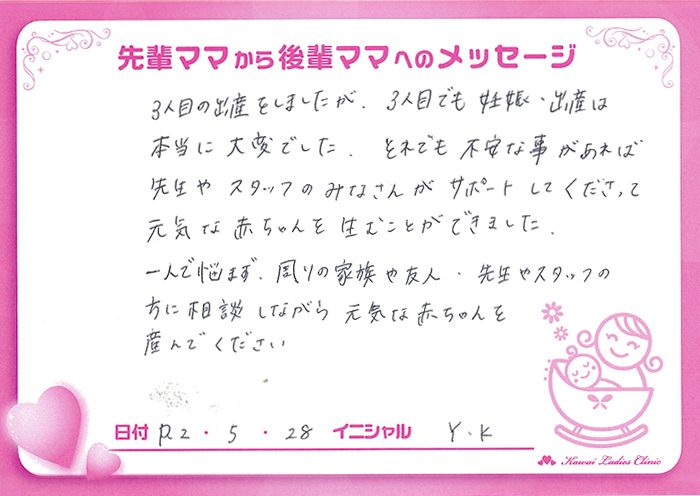 先輩ママから後輩ママへのメッセージ
3人目の出産をしましたが、3人目でも妊娠・出産は
本当に大変でした。それでも不安な事があれば
先生やスタッフのみなさんがサポートしてくださって
元気な赤ちゃんを生むことができました。
一人で悩まず、周りの家族や友人・先生やスタッフの
方に相談しながら元気な赤ちゃんを
産んでください
日付 R2・5・28 イニシャル Y.K
Kawai Ladies Clinic